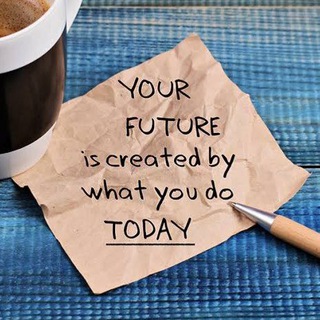 YOUR
FUTURE
is created by
what you do
TODAY